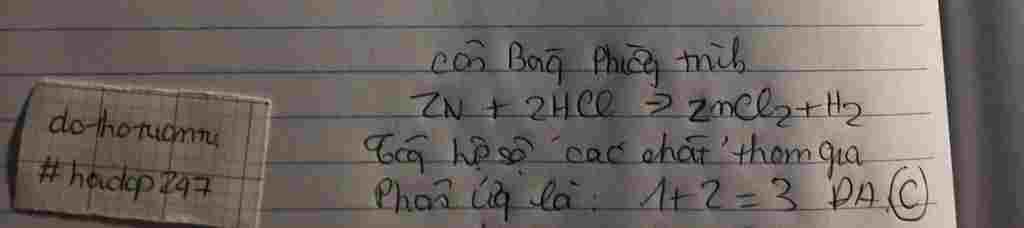 cân Bằng Phương trình
ZN + 2HCl → ZnCl2 + H2
Tổng hệ số các chất tham gia
Phản ứng là: 1 + 2 = 3 ĐA C
#hoidap247